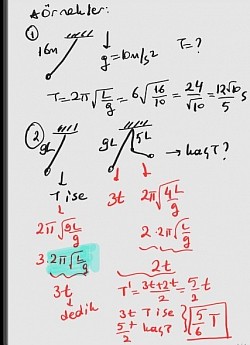 * Örnekler:
①
16m
g = 10m/s²
T = ?
T = 2π√(L/g) = 6√(16/10) = 24/√10 = 12√10/5 s
②
9L
9L
5L
→ kaç T?
T ise
3t
2π√(4L/g)
2π√(9L/g)
2·2π√(L/g)
3·2π√(L/g)
2t
3t
dedik
T' = (3t+2t)/2 = 5/2 t
3t T ise
5/2 t kaç?
5/6 T